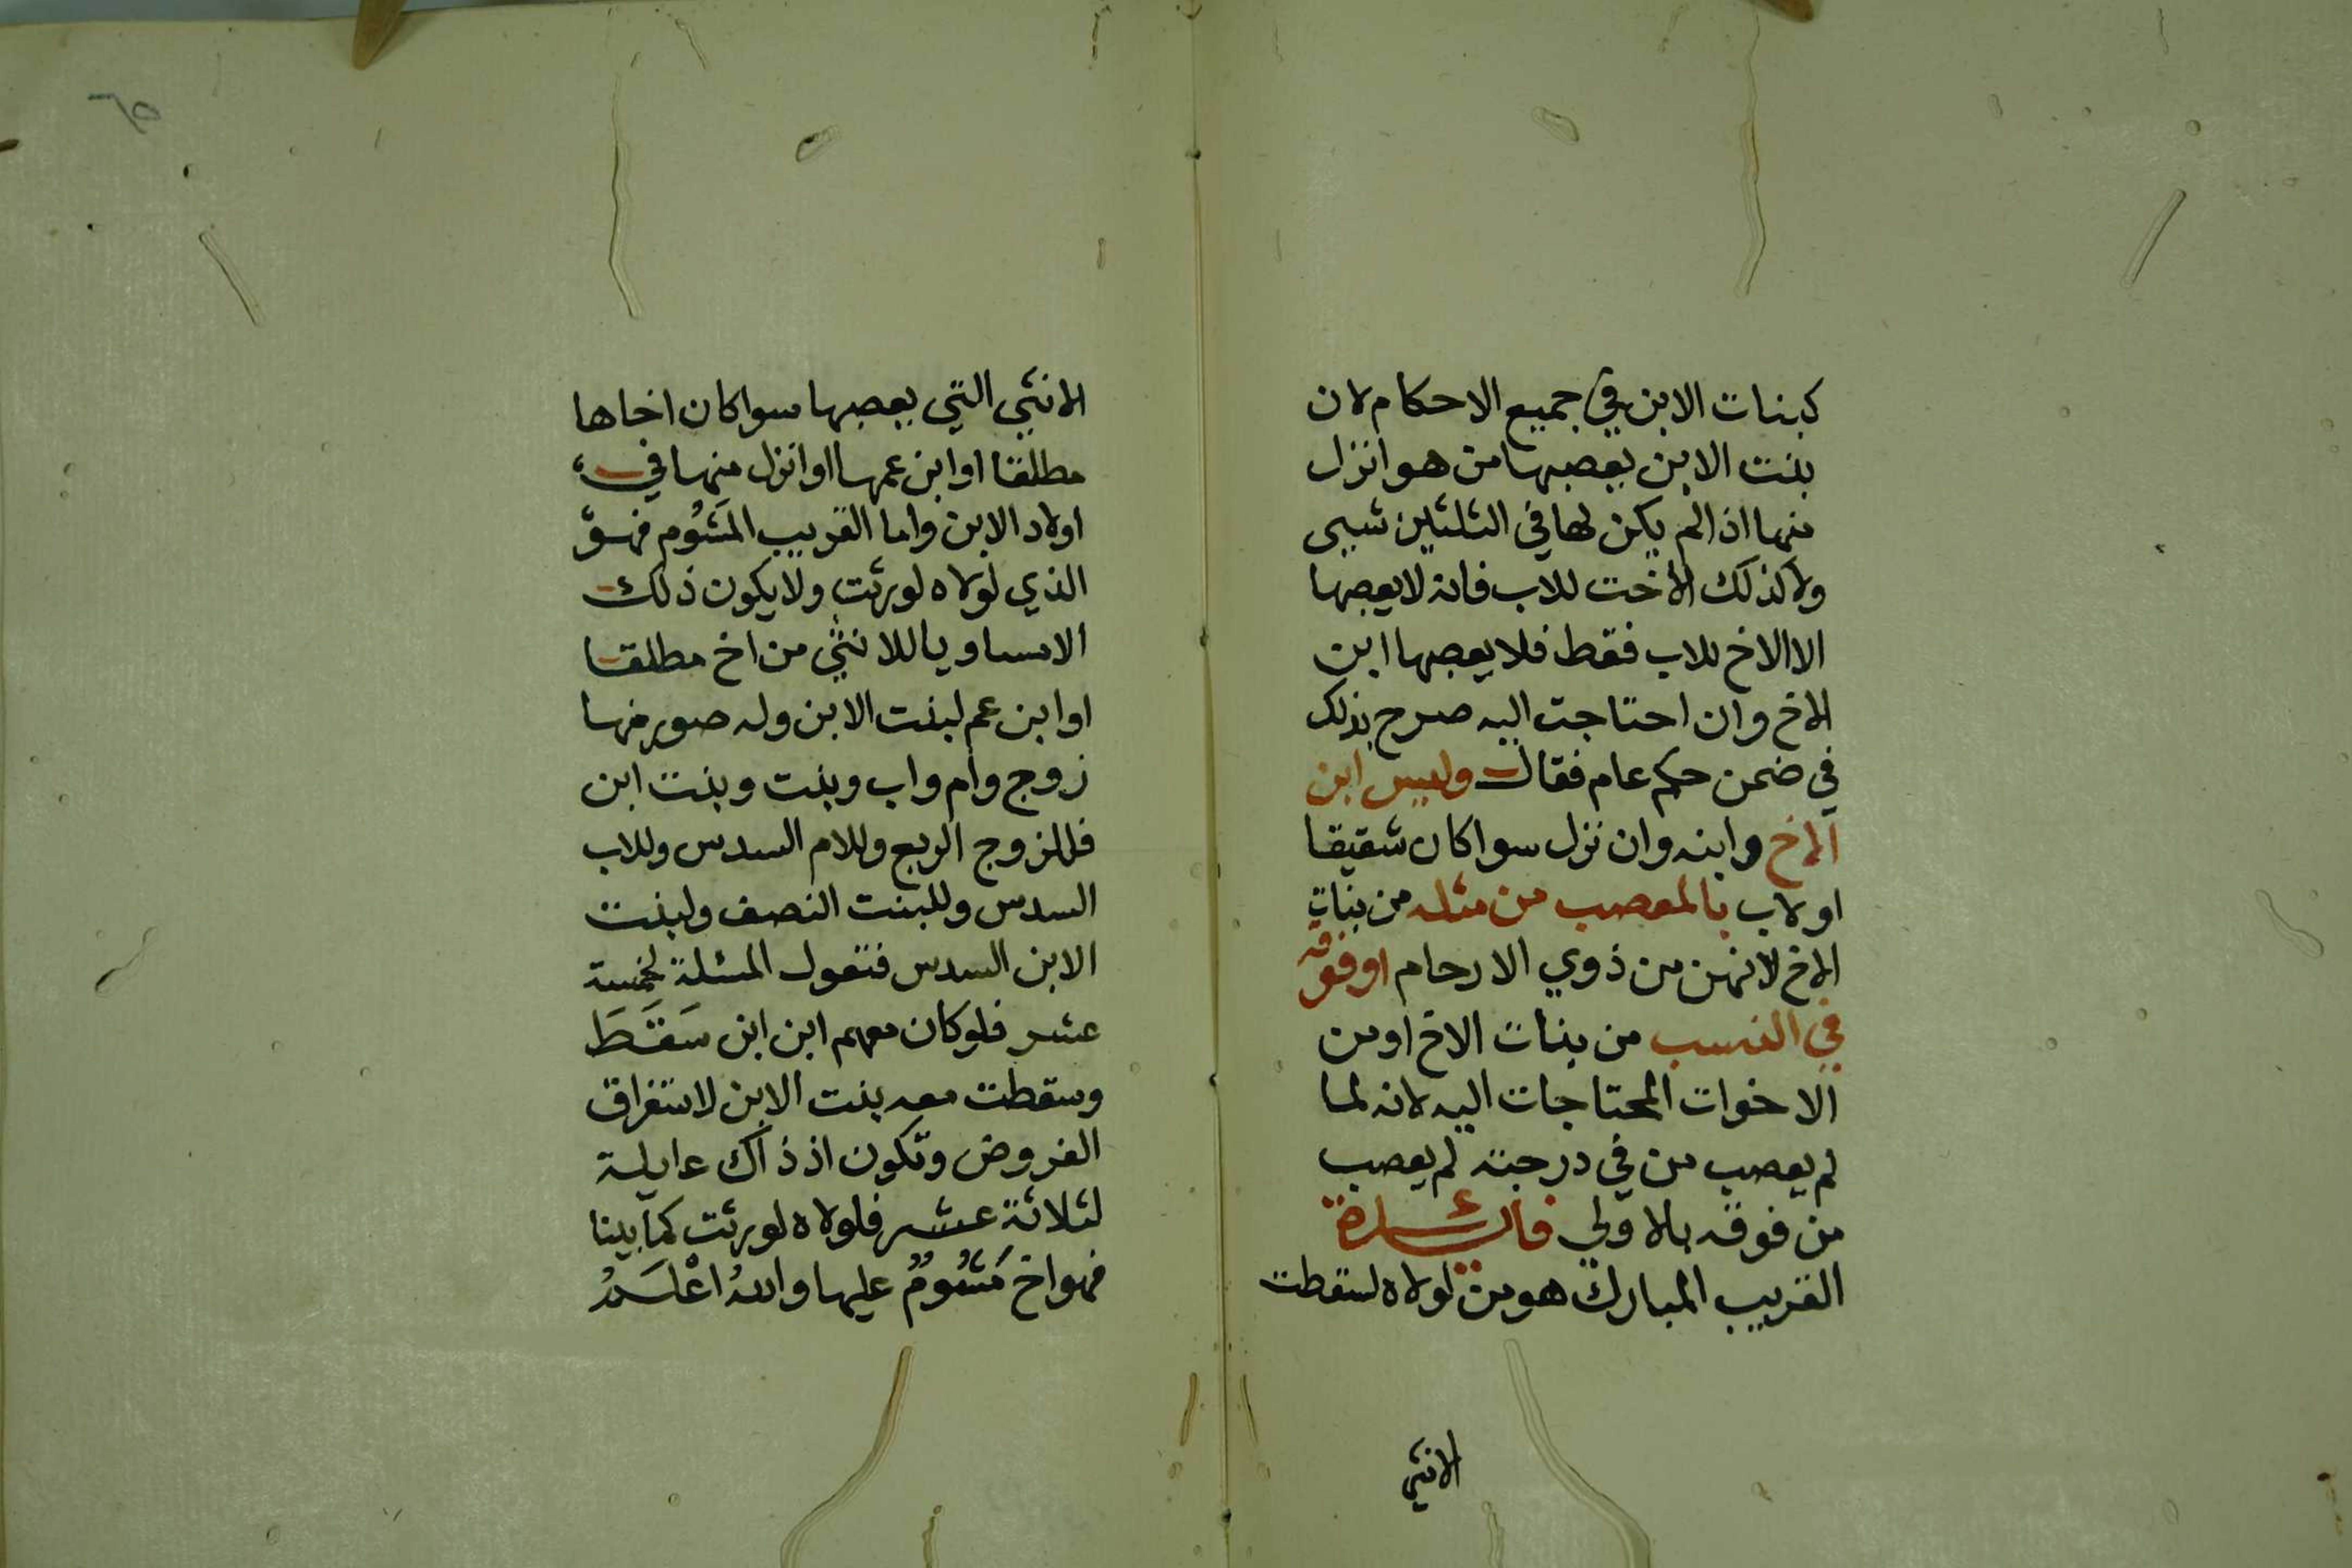 كبنات الابن في جميع الاحكام لان
بنت الابن يعصبها من هو انزل
منها اذا لم يكن لها في الثلثين شيى
ولا كذلك الأخت للاب فانه لا يعصبها
الا الاخ للاب فقط فلا يعصبها ابن
الاخ وان احتاجت اليه صرح بذلك
في ضمن حكم عام فقال وليس ابن
الاخ وابنه وان نزل سوا كان شقيقا
او لاب بالمعصب من مثله من بنات
الاخ لانهن من ذوي الارحام او فوقه
في النسب من بنات الاخ او من
الاخوات المحتاجات اليه لانه لما
لم يعصب من في درجته لم يعصب
من فوقه بالاولي فائدة
القريب المبارك هو من لولاه لسقطت
الانثي
الانثي التي يعصبها سوا كان اخاها
مطلقا او ابن عمها او انزل منها في
اولاد الابن واما القريب المَشُوم فهو
الذي لولاه لورثت ولا يكون ذلك
الا مساويا للانثي من اخ مطلقا
او ابن عم لبنت الابن وله صور منها
زوج وام واب وبنت وبنت ابن
فللزوج الربع وللام السدس وللاب
السدس وللبنت النصف ولبنت
الابن السدس فتعول المسئلة لخمسة
عشر فلو كان معهم ابن ابن سَقَطَ
وسقطت معه بنت الابن لاستغراق
الفروض وتكون اذ ذاك عايلة
لثلاثة عشر فلولاه لورثت كما بينا
فهو اخ مَشُومٌ عليها واللهُ اعْلَمُ